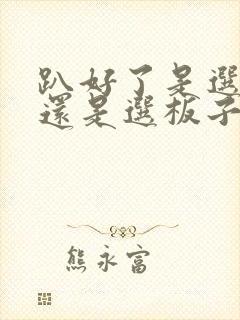 趴好了是選
還是選板子
熊永富